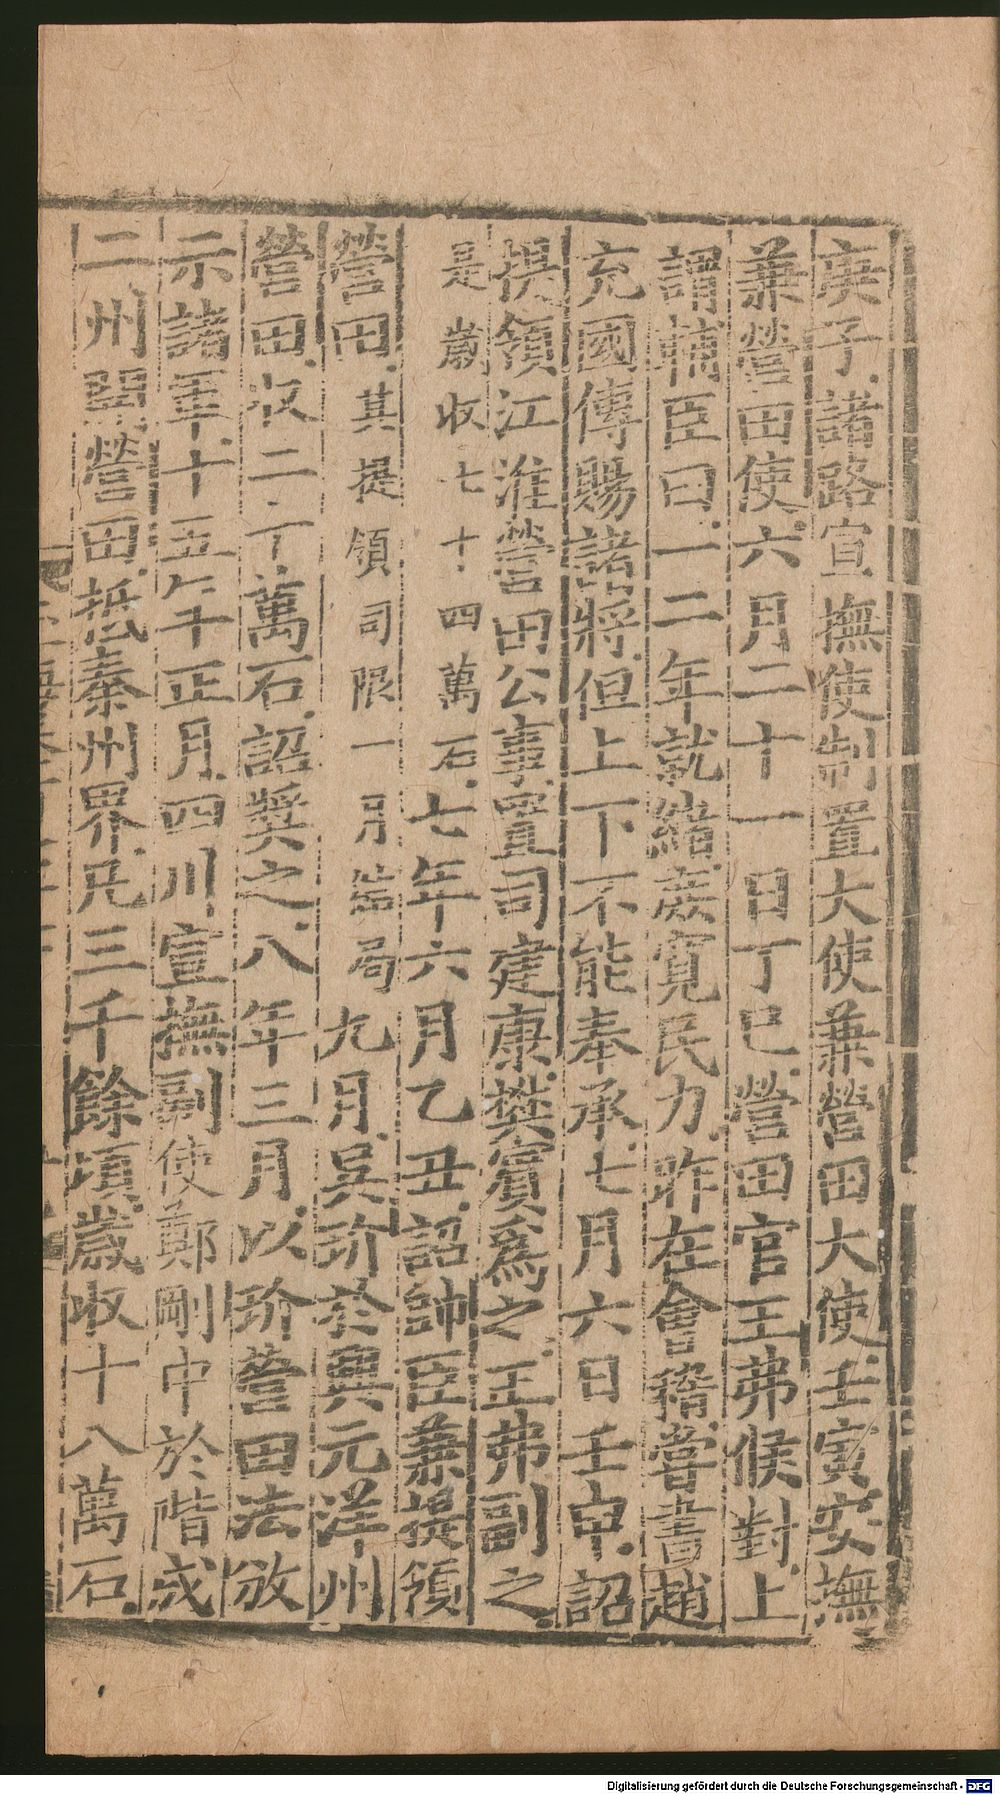 庚子諸路宣撫使制置大使兼營田大使壬寅安撫
兼營田使六月二十一日丁巳營田官王弗候對上
謂輔臣曰一二年就緒庶寬民力昨在會稽嘗書趙
充國傳賜諸將但上下不能奉承七月六日壬申詔
提領江淮營田公事置司建康樊賓爲之王弗副之
是歲收七十四萬石七年六月乙丑詔帥臣兼提領
營田其提領司限一月結局九月吳玠於興元洋州
營田收二丁萬石詔奬之八年三月以玠營田法放
示諸軍十五年正月四川宣撫副使鄭剛中於階成
二州開營田抵秦州界凡三千餘頃歲收十八萬石
Digitalisierung gefördert durch die Deutsche Forschungsgemeinschaft - DFG